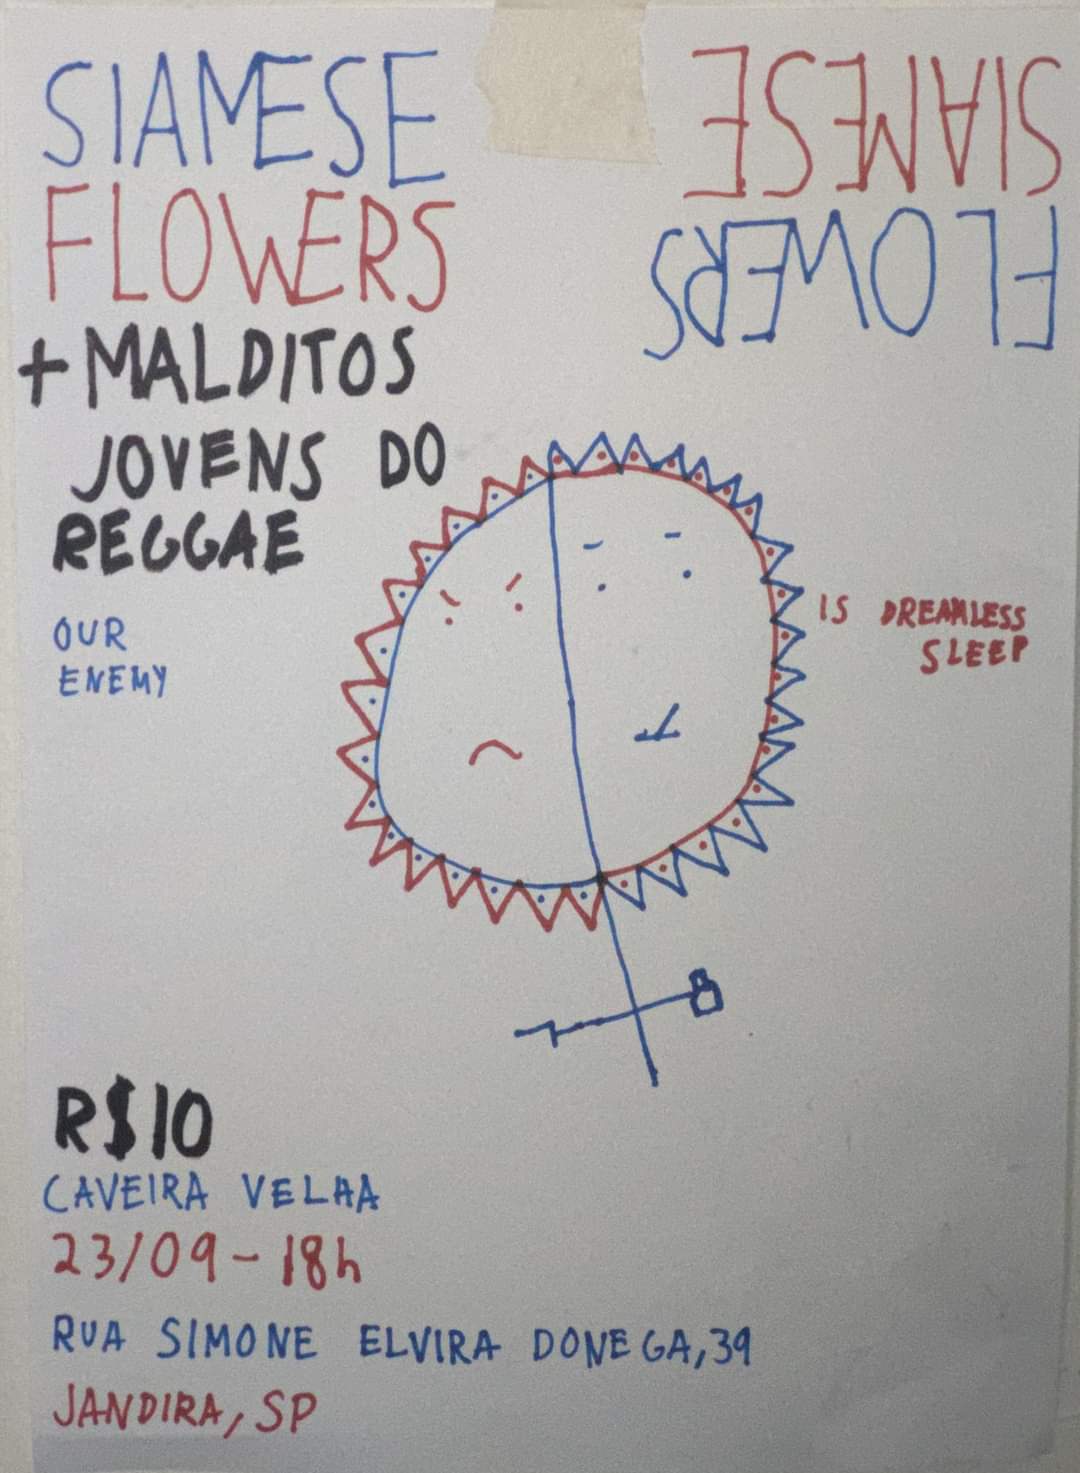 SIAMESE
FLOWERS
SIAMESE
FLOWERS
+ MALDITOS
JOVENS DO
REGGAE
OUR
ENEMY
IS DREAMLESS
SLEEP
R$10
CAVEIRA VELHA
23/09 - 18h
RUA SIMONE ELVIRA DONEGA, 39
JANDIRA, SP